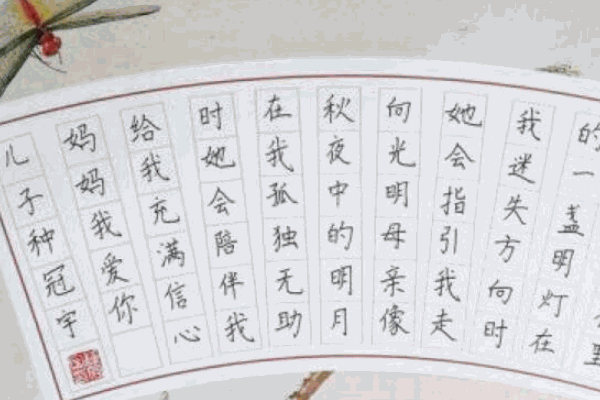 的一盏明灯在
我迷失方向时
她会指引我走
向光明母亲像
秋夜中的明月
在我孤独无助
时她会陪伴我
给我充满信心
妈妈我爱你
儿子种冠宇